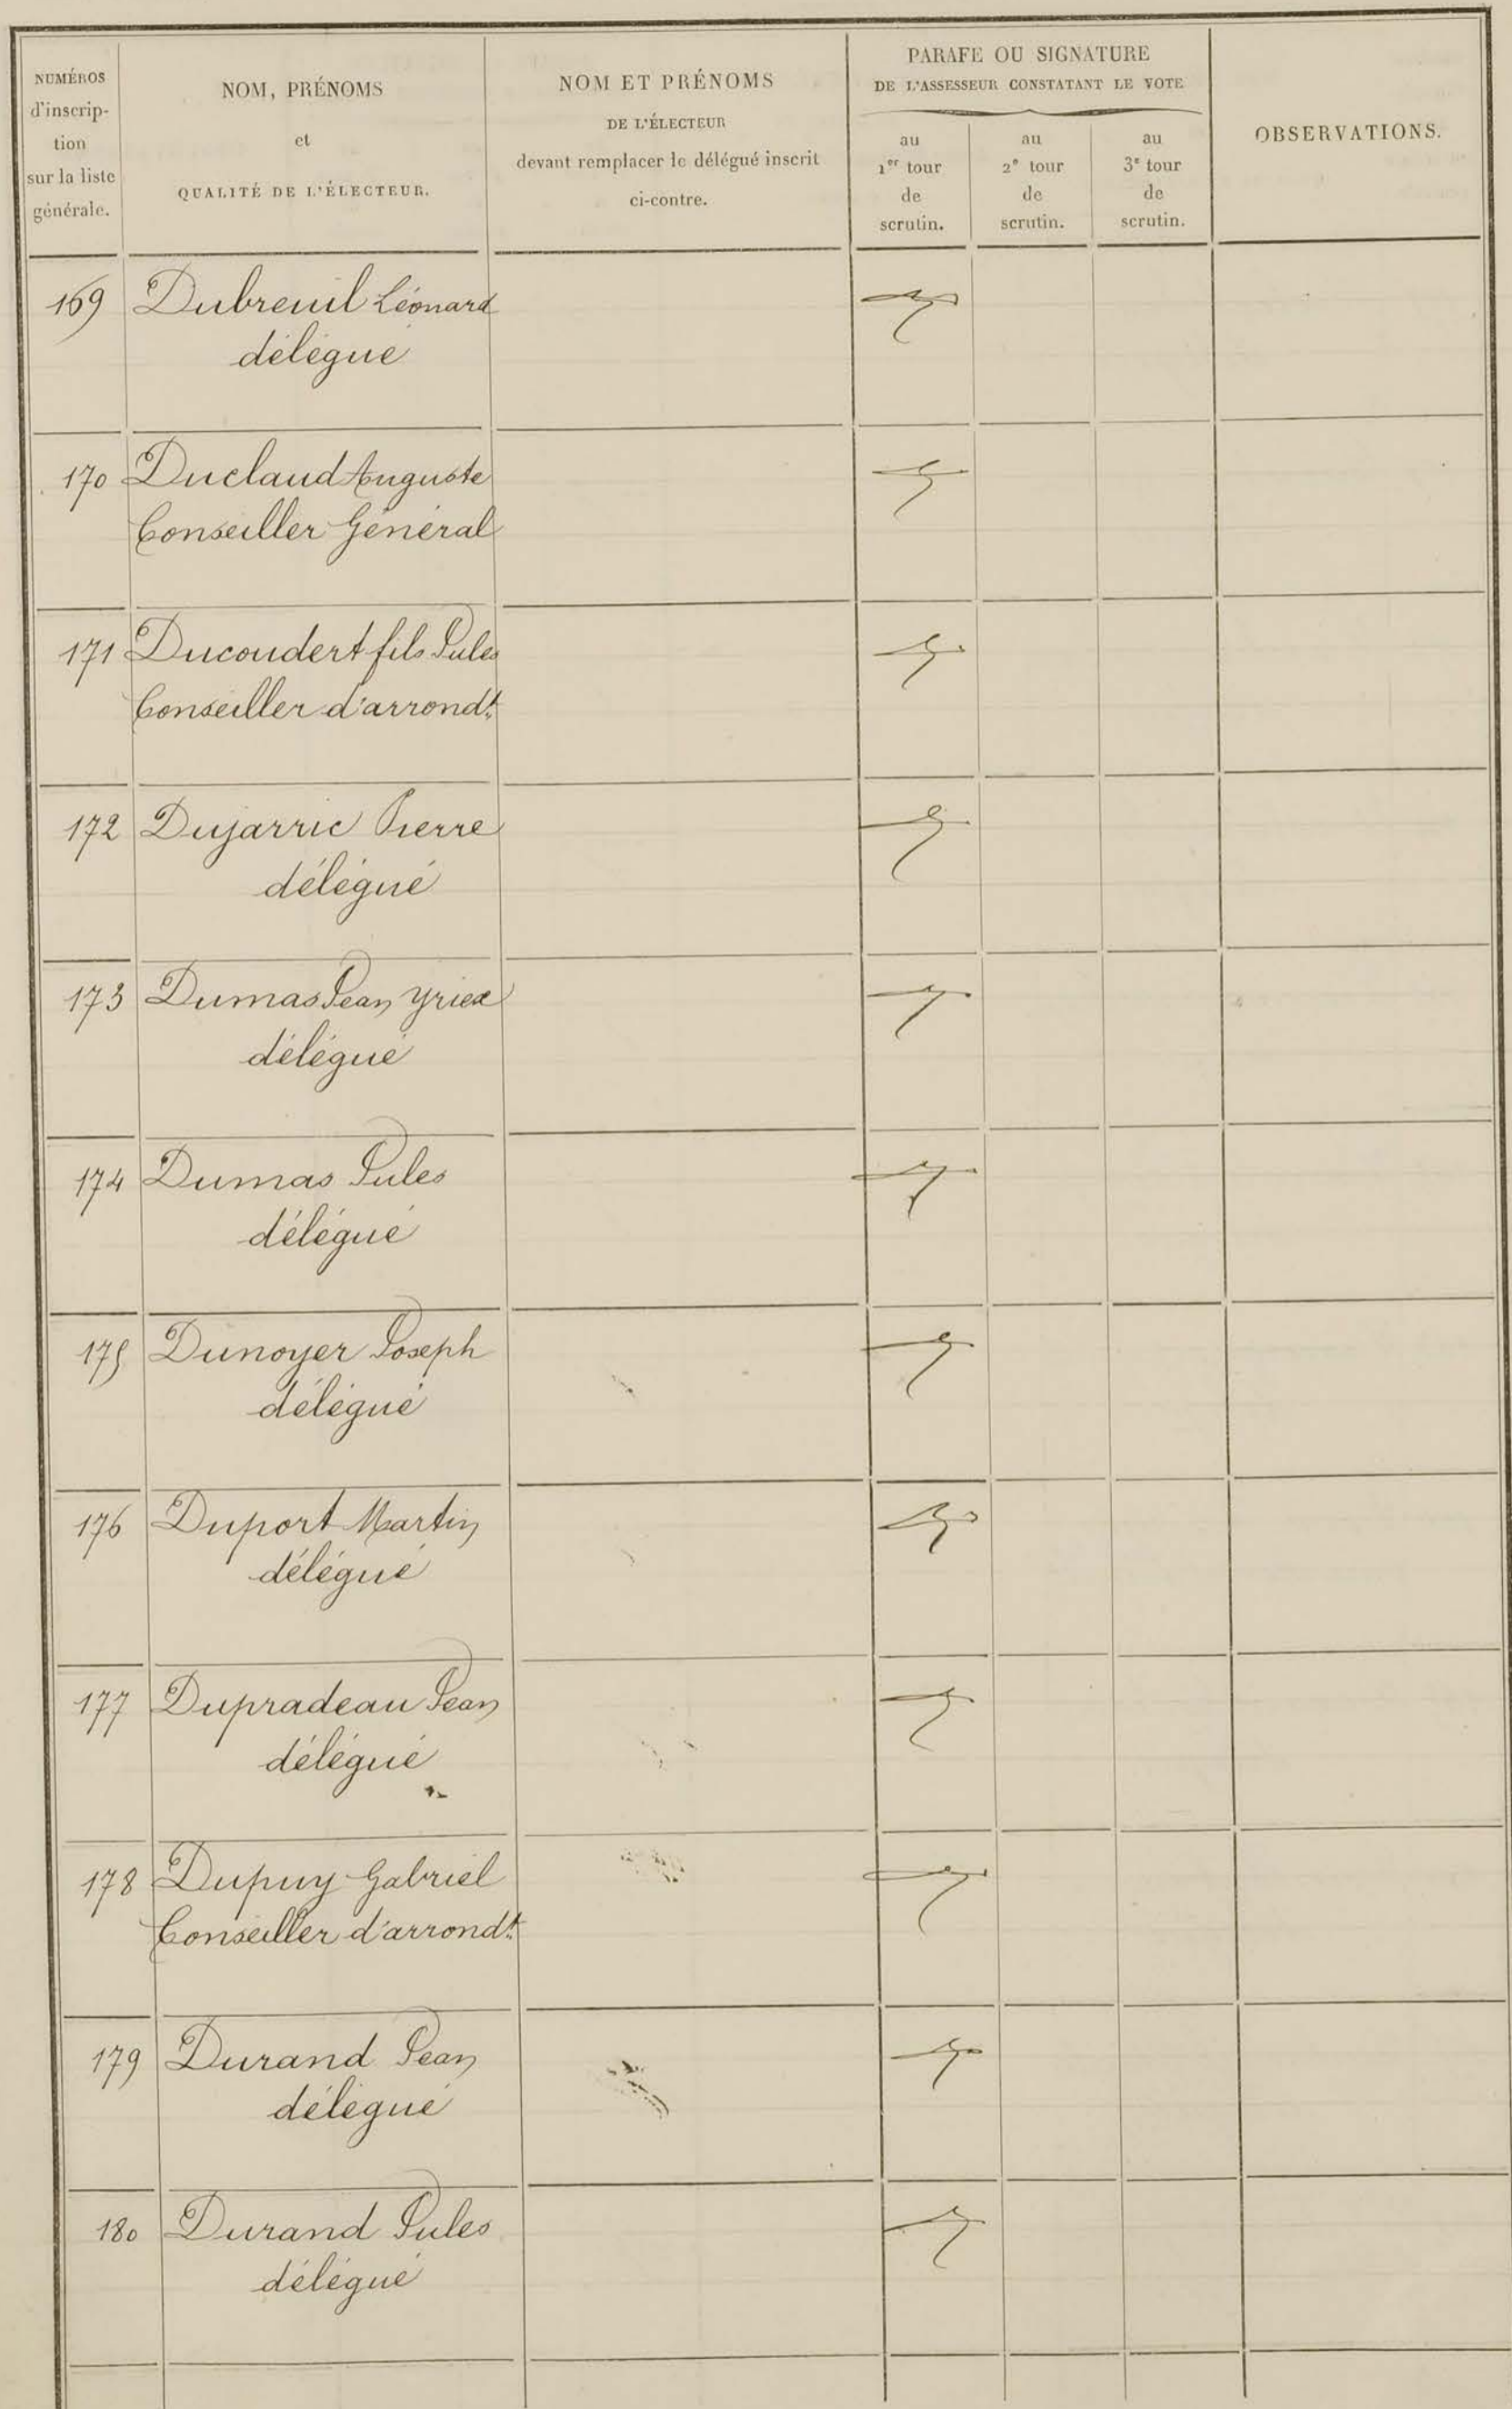 NUMÉROS
d'inscrip-
tion
sur la liste
générale.
NOM, PRÉNOMS
et
QUALITÉ DE L'ÉLECTEUR.
NOM ET PRÉNOMS
DE L'ÉLECTEUR
devant remplacer le délégué inscrit
ci-contre.
PARAFE OU SIGNATURE
DE L'ASSESSEUR CONSTATANT LE VOTE
au
1er tour
de
scrutin.
au
2e tour
de
scrutin.
au
3e tour
de
scrutin.
OBSERVATIONS.
169 Dubreuil Léonard
délégué
170 Duclaud Auguste
Conseiller Général
171 Ducoudert fils Jules
Conseiller d'arrondt.
172 Dujarric Pierre
délégué
173 Dumas Jean Yriex
délégué
174 Dumas Jules
délégué
175 Dunoyer Joseph
délégué
176 Duport Martin
délégué
177 Dupradeau Jean
délégué
178 Dupuy Gabriel
Conseiller d'arrondt.
179 Durand Jean
délégué
180 Durand Jules
délégué